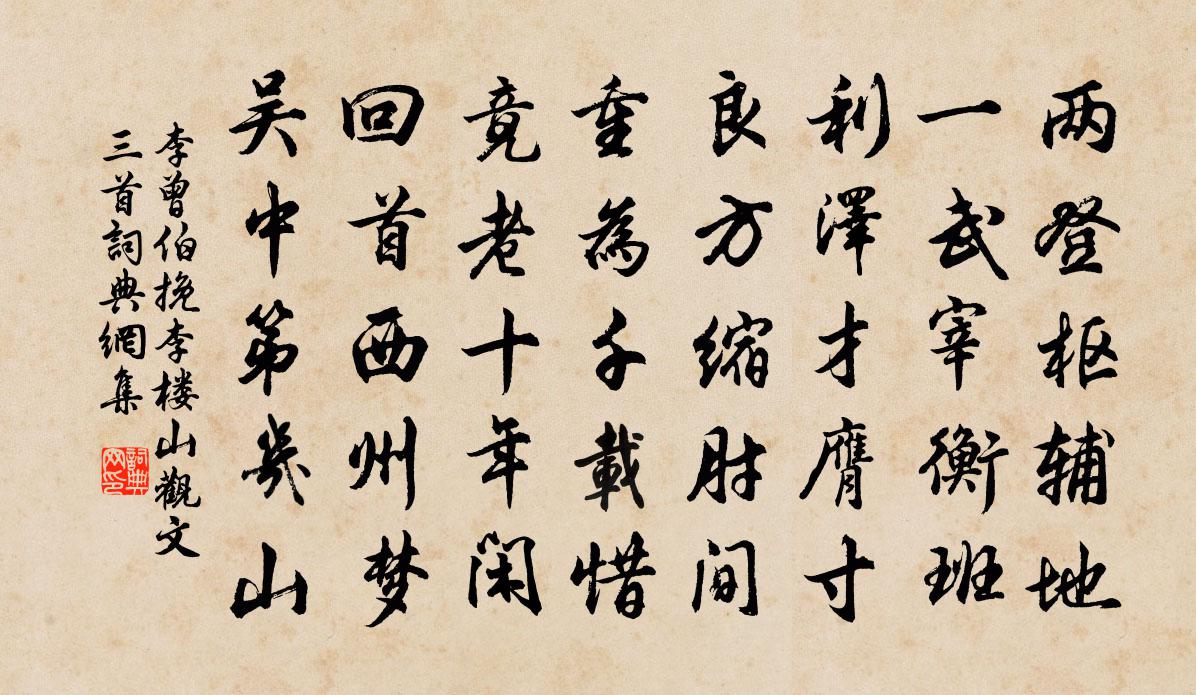 两登枢辅地
一武宰衡班
利澤才膚寸
良方缩肘间
重為千載惜
竟老十年闲
回首西州梦
吴中第几山
李曾伯挽李楼山觀文
三首詞典網集
詞典网印